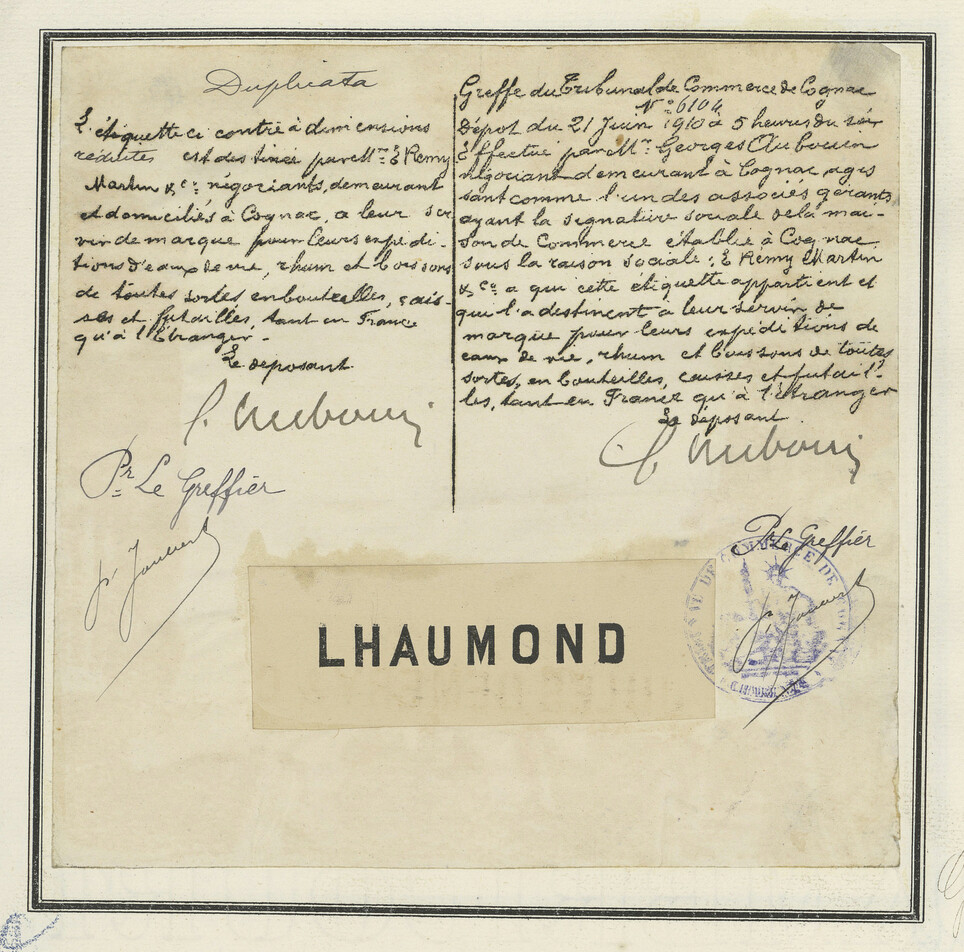 Duplicata
L'étiquette ci contre à dimensions
réduites est destinée par Mrs E Remy
Martin & Co; négociants, demeurant
et domiciliés à Cognac, a leur ser
vir de marque pour leurs expédi-
tions d'eaux de vie, rhum et boissons
de toutes sortes en bouteilles, cais-
ses et futailles, tant en France
qu'à l'Etranger.-
Le deposant
G. Aubouin
Pr Le Greffier
Greffe du Tribunal de Commerce de Cognac
No 6104
Dépot du 21 Juin 1910 à 5 heures du soir
Effectué par Mr Georges Aubouin
négociant demeurant à Cognac, agis
sant comme l'un des associés gérants
ayant la signature sociale de la mai-
son de Commerce établie à Cognac
sous la raison sociale: E Remy Martin
& Co a qui cette étiquette appartient et
qui l'a destinent a leur servir de
marque pour leurs expéditions de
eaux de vie, rhum et boissons de toutes
sortes, en bouteilles, caisses et futail-
les, tant en France qu'à l'étranger
Le déposant
G. Aubouin
Pr Le Greffier
LHAUMOND
TRIBUNAL DE COMMERCE DE COGNAC